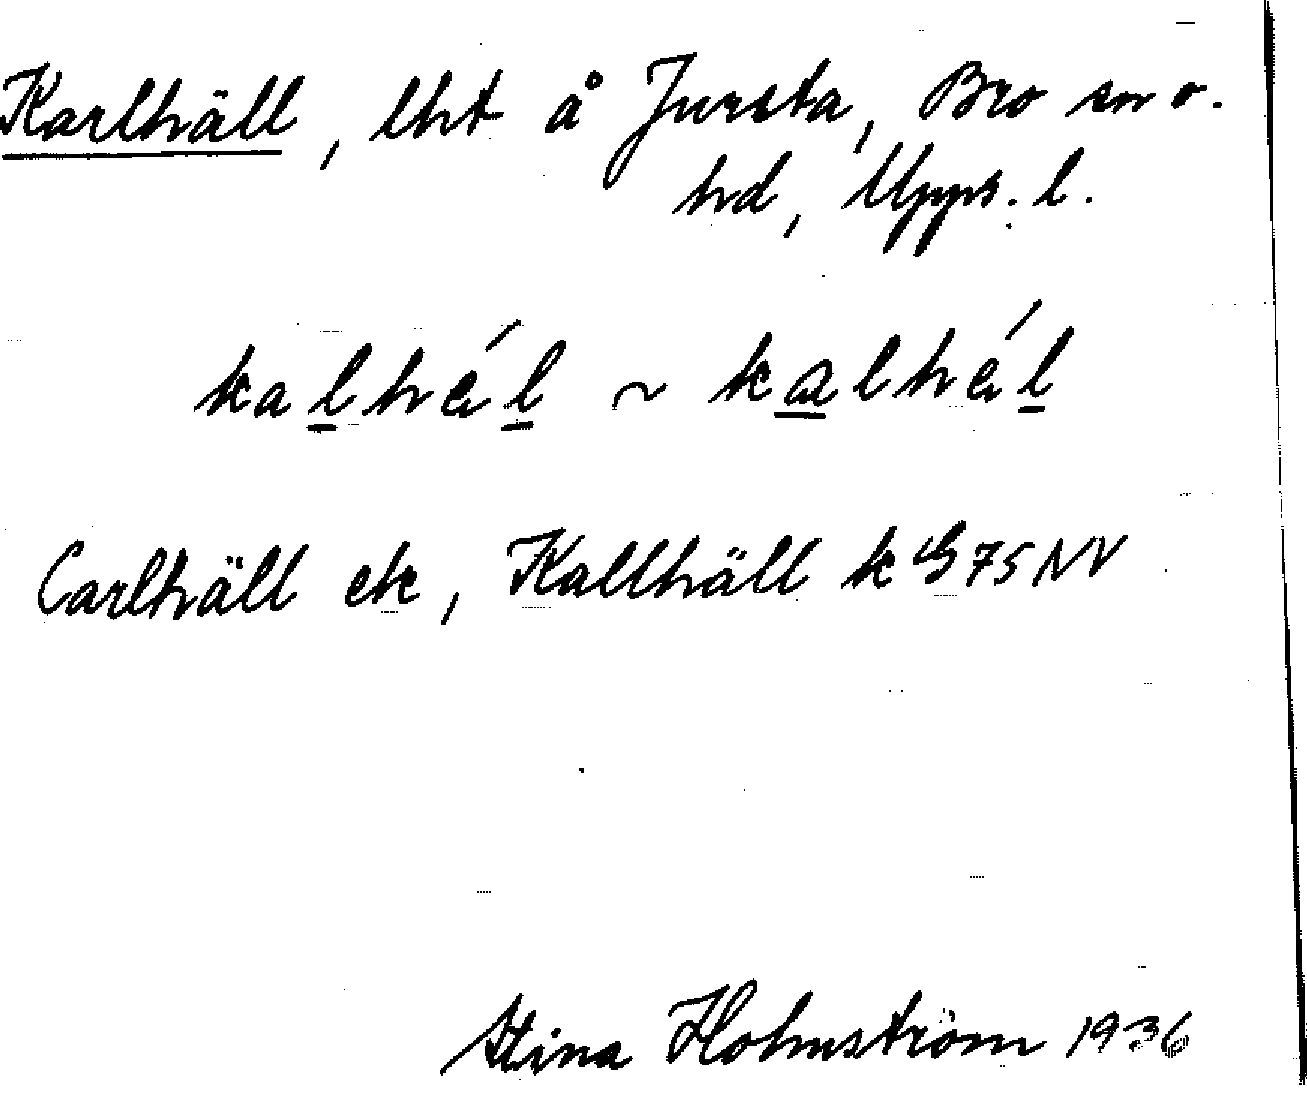 Karlhäll, lht å Jursta, Bro sn o.
hd, Upps. l.
kal̲hǽl̲ ~ ka̲lhǽl̲
Carlhäll ek, Kallhäll k G 75 NV
Stina Holmström 1936